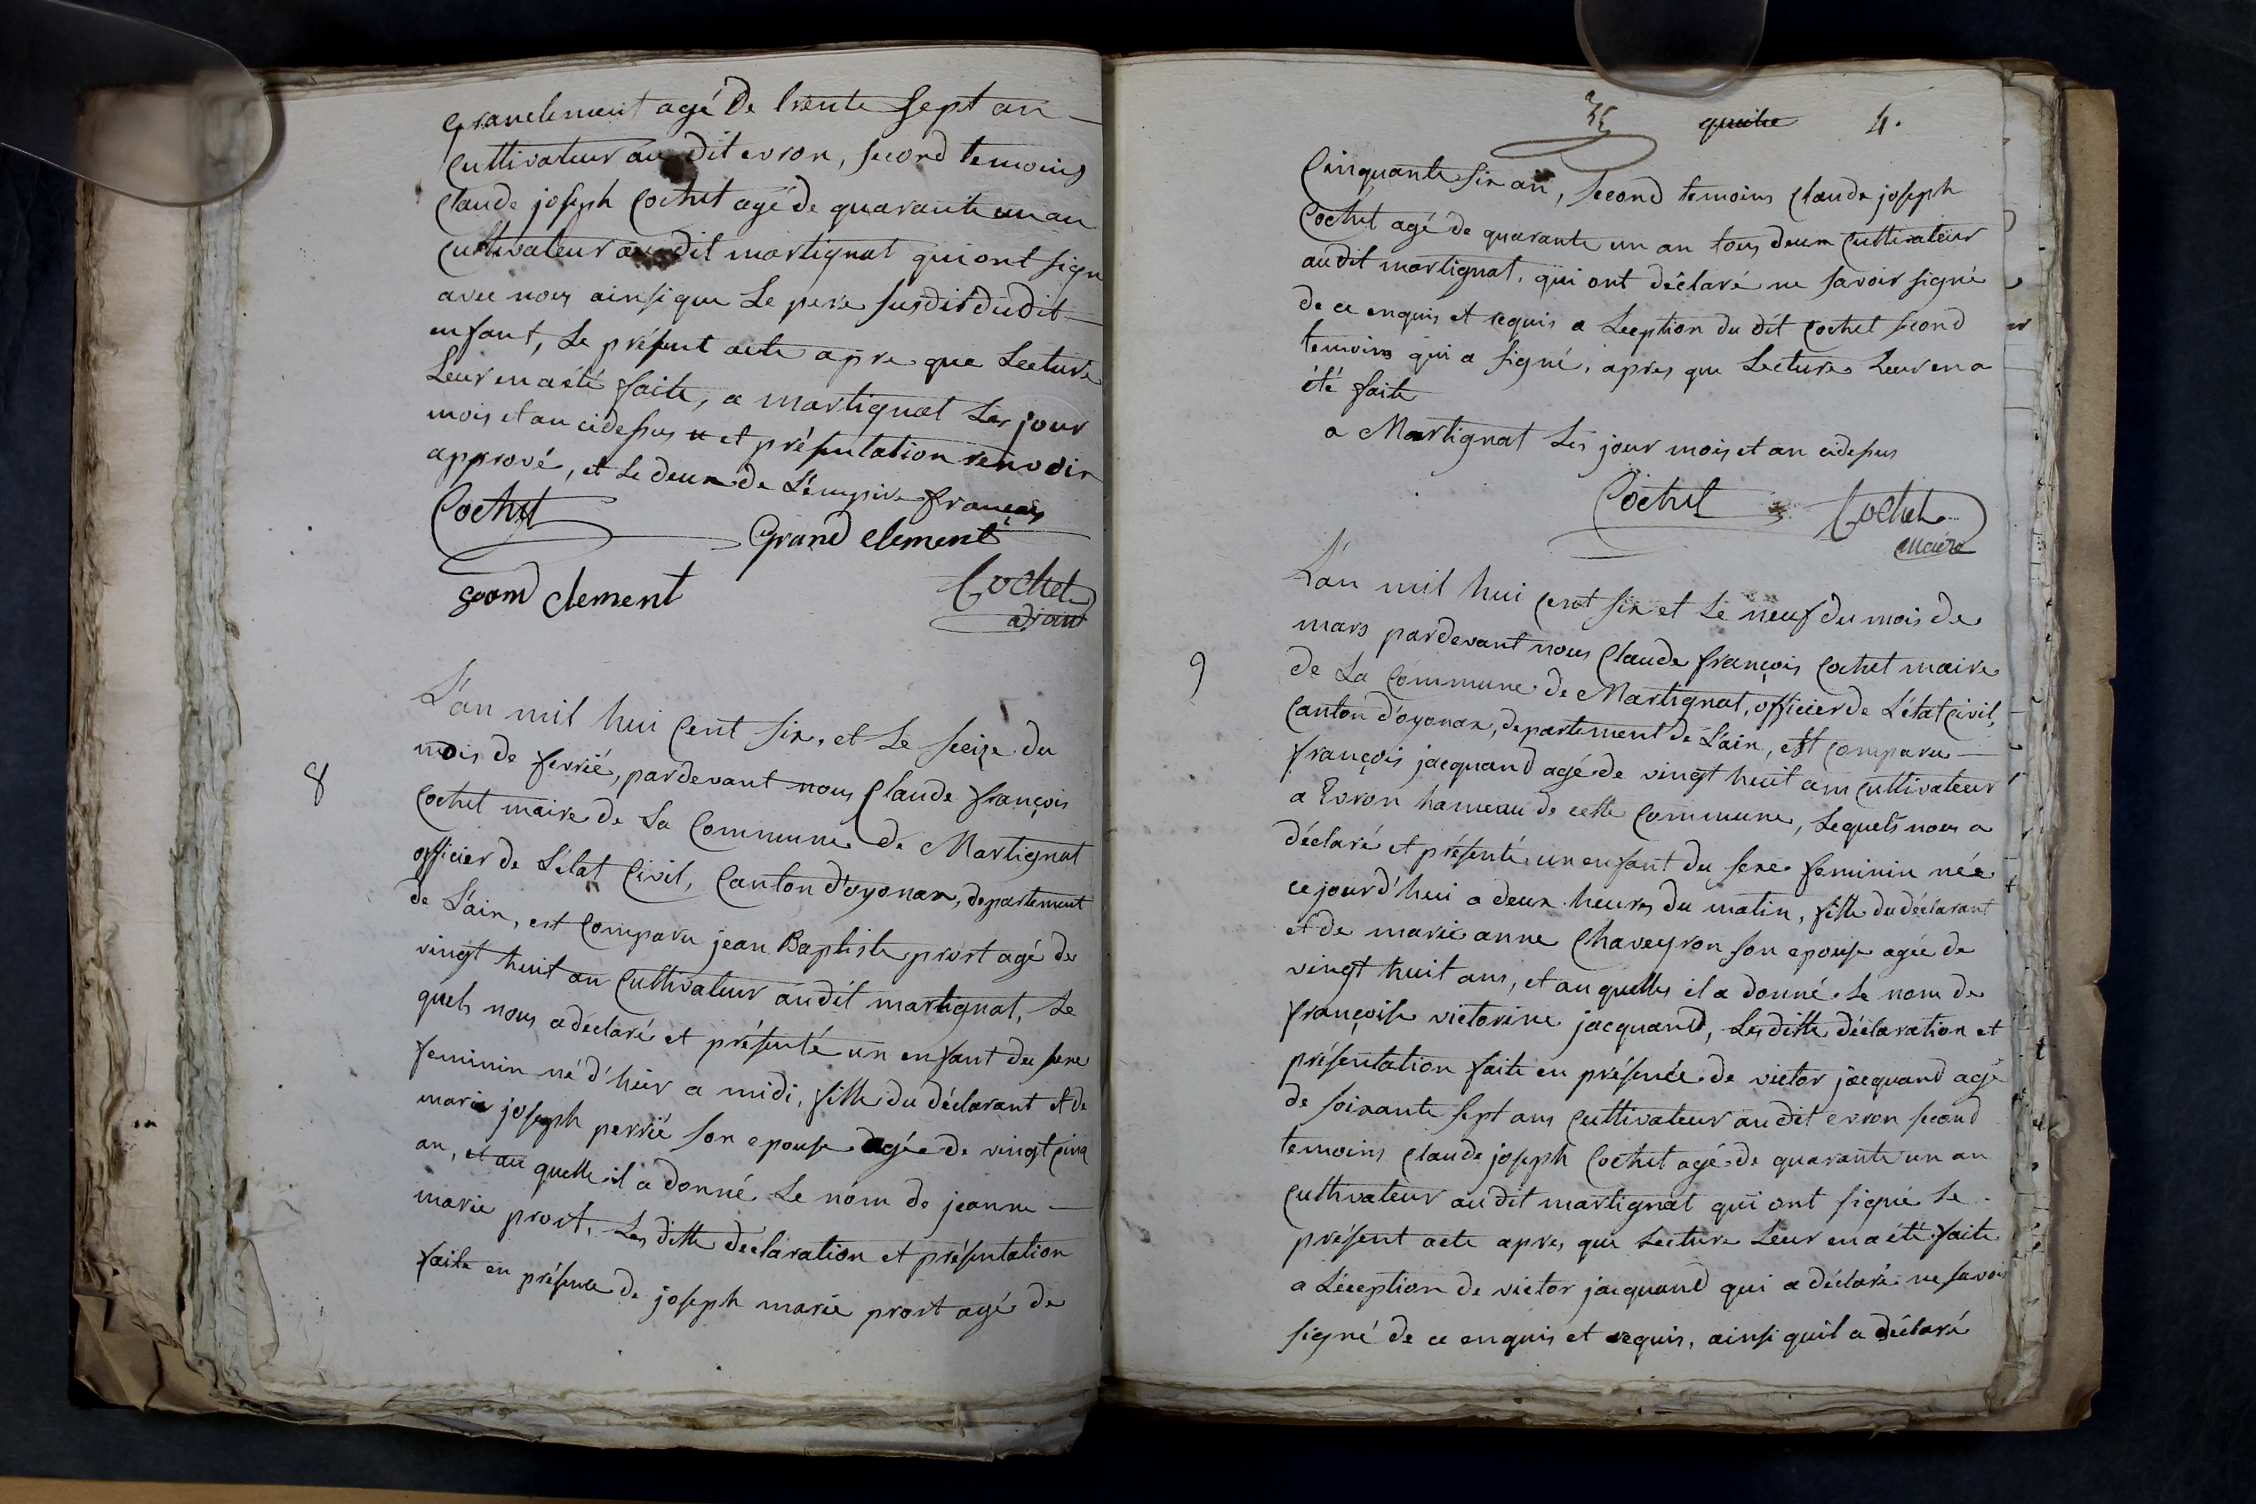 grandclement agé De trente sept an
Cultivateur au dit evron, second temoins
Claude joseph Cochet agé de quarante un an
Cultivateur audit martignat qui ont signe
avec nous ainsi que Le pere susdit dudit
enfant, Le présent acte apre que Lecture
Leur en a été faite, a martignat Les jour
mois et an cidessus et présentation renvoir
apprové, et Le deux de L'empire françois
Cochet
Grand clement
grand clement
Cochet
8
L'an mil hui Cent six, et Le seize du
mois de fevrié, pardevant nous Claude françois
Cochet maire de La Commune de Martignat
officier de L'état Civil, Canton d'oyonax, departement
de L'ain, est Comparu jean Baptiste prost agé de
vingt huit an Cultivateur au dit martignat, Le
quels nous a déclaré et présenté un enfant du sexe
feminin né d'hier a midi, fille du déclarant et de
marie joseph perrié son epouse agée de vingt Cinq
an, et au quelle il a donné Le nom de jeanne
marie prost, Les ditte déclaration et présentation
faite en présence de joseph marie prost agé de
35 quatre 4.
Cinquante six an, second temoins Claude joseph
Cochet agé de quarante un an tous deux Cultivateur
au dit martignat, qui ont déclaré ne savoir signé
de ce enquis et requis a Lecption du dit Cochet second
temoins qui a signé, apres que Lecture Leur en a
été faite
a Martignat Les jour mois et an cidessus
Cochet Cochet
maire
9
L'an mil hui Cent six et Le neuf du mois de
mars pardevant nous Claude françois Cochet maire
de La Commune de Martignat, officier de L'état Civil,
Canton d'oyonax, departement de L'ain, est Comparu
françois jacquand agé de vingt huit ans Cultivateur
a Evron hameau de cette Commune, Lequels nous a
déclaré et présenté un enfant du sexe feminin née
cejourd'hui a deux heures du matin, fille du déclarant
et de marie anne Chaveyron son epouse agée de
vingt huit ans, et au quelles il a donné Le nom de
françoise victorine jacquand, Les ditte déclaration et
présentation faite en présence de victor jacquand agé
de soixante sept ans Cultivateur au dit evron second
temoins Claude joseph Cochet agé de quarante un an
Cultivateur au dit martignat qui ont signé Le
présent acte apres que Lecture Leur en a été faite
a Léception de victor jacquand qui a déclaré ne savoir
signé de ce enquis et requis, ainsi quil a déclaré